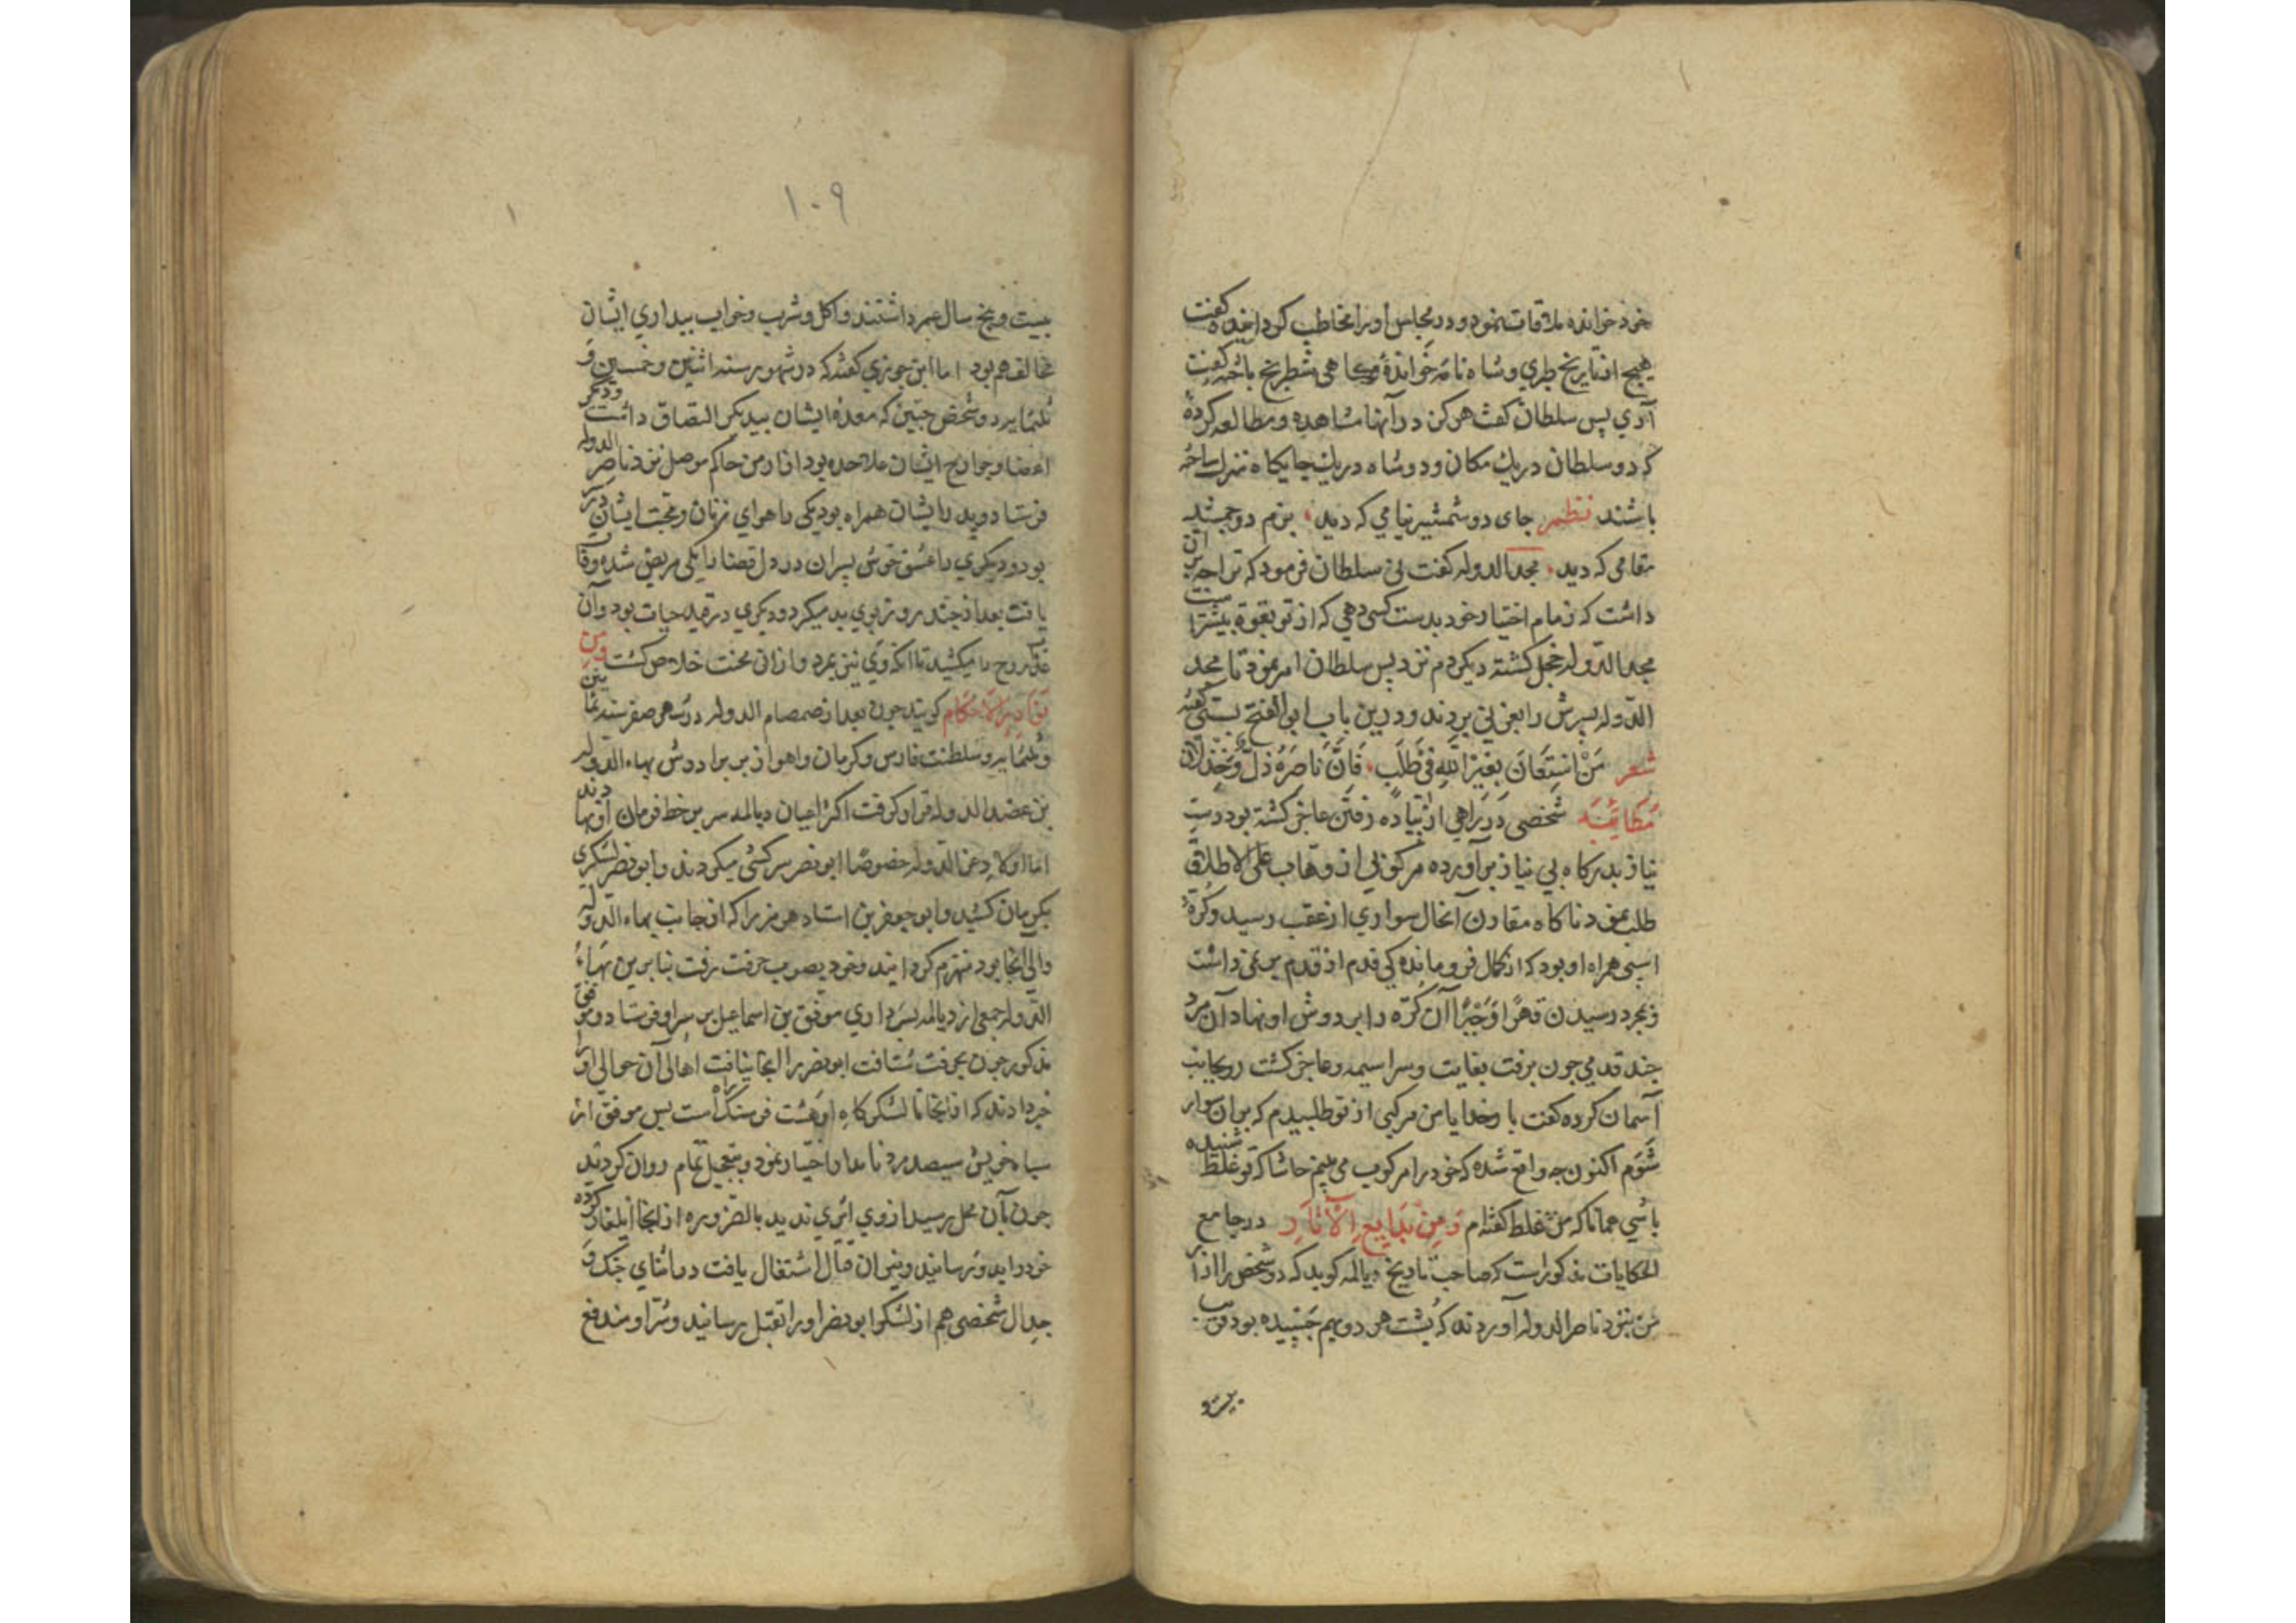 خود خوانده ملاقات نمود و در مجلس او را مخاطب کردانیده کفت
هیچ از تاریخ طبری و شاه نامه خواندهٔ و کاهی شطرنج باخته کفت
آری پس سلطان کفت هرکز در آنها مشاهده و مطالعه کردهٔ
که دو سلطان در یک مکان و دو شاه در یک جایکاه نرد ساخته
باشند نظم جای دو شمشیر نیامی که دید بزم دو جمشید
مقامی که دید مجد الدوله کفت نی سلطان فرمود که ترا چه بر آن
داشت که زمام اختیار خود بدست کسی دهی که از تو بقوة بیشتر است
مجد الدوله خجل کشته دیکر دم نزد پس سلطان امر نمود تا مجد
الدوله پسرش را بغزنی بردند و درین باب ابو الفتح بستی کفته
شعر مَنِ اسْتَعَانَ بِغَیْرِ اللهِ فِی طَلَبٍ فَاِنَّ نَاصِرَهُ ذُلٌّ وَ خِذْلَان
مطایبه شخصی در راهی از پیاده رفتن عاجز کشته بود دست
نیاز بدرکاه بی نیاز برآورده مرکوبی از وهاب علی الاطلاق
طلب نمود ناکاه مقارن آنحال سواری از عقب رسید و کرهٔ
اسبی همراه او بود که از کمال فروماندکی قدم از قدم بر نمی داشت
بمجرد رسیدن قهراً و جبراً آن کره را بر دوش او نهاد آن مرد
چند قدمی چون برفت بغایت و سراسیمه و عاجز کشت رو بجانب
آسمان کرده کفت بار خدایا من مرکبی از تو طلبیدم که بر آن سوار
شوم اکنون چه واقع شده که خود را مرکوب می بینم حاشا که تو غلط شنیده
باشی همانا که من غلط کفته ام وَ مِنْ بَدَایِعِ الْآثَار در جامع
الحکایات مذکور است که صاحب تاریخ دیالمه کوید که دو شخص را از ار
من بنزد ناصر الدوله آوردند که پشت هر دو بهم چسپیده بود قریب
بیست و
۱۰۹
بیست و پنج سال عمر داشتند و اکل و شرب و خواب بیداری ایشان
مخالف هم بود اما ابن جوزی کفته که در شهور سنه اثنین و خمسین و
ثلثمایه دو شخص چنین که معدهٔ ایشان بیکدیکر التصاق داشت و دیکر
اعضا و جوارح ایشان علاحده بود از ارمن حاکم موصل نزد ناصر الدوله
فرستاد و پدر با ایشان همراه بود یکی را هوای زنان و محبت ایشان در سر
بود و دیکری را عشق خوش پسران در دل قضا را یکی مریض شده وفات
یافت بعد از چند روز بوی بد میکرد و دیکری در قید حیات بود و آن
عذاب روح را میکشید تا آنکه وی نیز بمرد و از آن محنت خلاص کشت و من
نوادر الاحکام کویند چون بعد از صمصام الدوله در شهر صفر سنه ثمانین
و ثلثمایه و سلطنت فارس و کرمان و اهواز بر برادرش بهاء الدوله
بن عضد الدوله قرار کرفت اکثر اعیان دیالمه سر بر خط فرمان او نهادند
اما اولاد عز الدوله خصوصاً ابو نصر سرکشی میکردند و ابو نصر لشکری
بکرمان کشید و ابو جعفر بن استاد هرمز را که از جانب بهاء الدوله
والی آنجا بود منهزم کردانید و خود بصوب جیرفت رفت بنا برین بهاء
الدوله جمعی از دیالمه بسرداری موفق بن اسماعیل بر سر او فرستاد و موفق
مذکور چون بجرفت شتافت ابو نصر را آنجا نیافت اهالی آن حوالی او را
خبر دادند که از آنجا تا لشکرکاه او هشت فرسنک راه است پس موفق از
سپاه خویش سیصد مرد نامدار اختیار نمود و بتعجیل تمام روان کردید
چون بآن محل رسید از وی اثری ندید بالضروره از آنجا ایلغار کرده
خود را بدو رسانید و نیران قتال اشتعال یافت در اثنای جنک و
جدال شخصی هم از لشکر ابو نصر او را بقتل رسانید و شر او مندفع